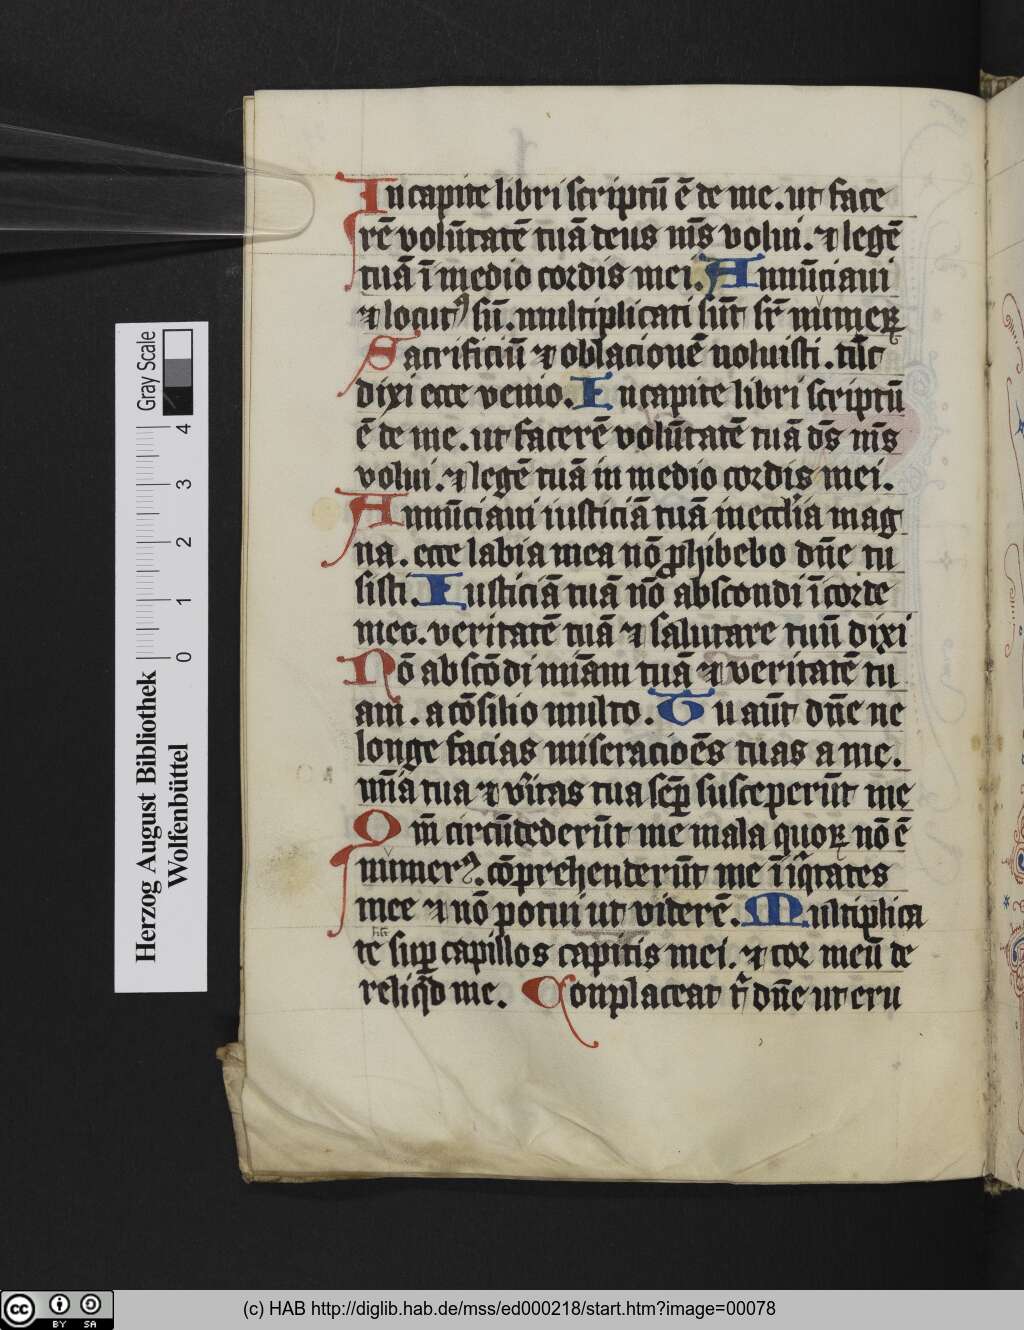 In capite libri scriptū ē de me. ut face
rē volūtatē tuā deus m̄s volui. ⁊ legē
tuā ī medio cordis mei. Annūciaui
⁊ locutꝰ sū. multiplicati sūt sr̄ numeꝝ
Sacrificiū ⁊ oblacionē noluisti. tūc
dixi ecce venio. In capite libri scriptū
ē de me. ut facerē volūtatē tuā ds̄ m̄s
volui. ⁊ legē tuā in medio cordis mei.
Annūciaui iusticiā tuā in eccl̄ia mag
na. ecce labia mea nō ꝓhibebo dn̄e tu
sisti. Iusticiā tuā nō abscondi ī corde
meo. veritatē tuā ⁊ salutare tuū dixi
Nō abscōdi mīam tuā ⁊ veritatē tu
am. a cōsilio multo. Tu aūt dn̄e ne
longe facias miseracioēs tuas a me.
mīa tua ⁊ vītas tua scꝑ susceperūt me
Qm̄ circūdederūt me mala quoꝝ nō ē
numerꝰ. cōprehenderūt me īiqͥtates
mee ⁊ nō potui ut viderē. Multiplica
te suꝑ capillos capitis mei. ⁊ cor meū de
reliqͥd me. Conplaceat tͥ dn̄e ut eru
Gray Scale
4
3
2
1
0
Herzog August Bibliothek
Wolfenbüttel
cc BY SA
(c) HAB http://diglib.hab.de/mss/ed000218/start.htm?image=00078